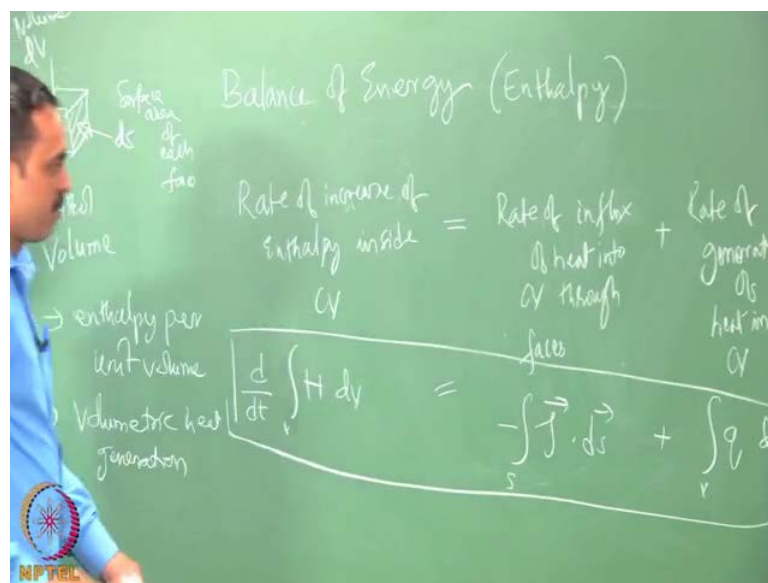 Volume
dV
Surface
area
of
each
face
ds
Volume
→ enthalpy per
unit volume
volumetric heat
generation
Balance of Energy (Enthalpy)
Rate of increase of
Enthalpy inside
CV
=
Rate of influx
of heat into
CV through
faces
+
Rate of
generat
of
heat in
CV
d/dt ∫_v H dv = -∫_s J⃗ · ds⃗ + ∫_v q d
NPTEL